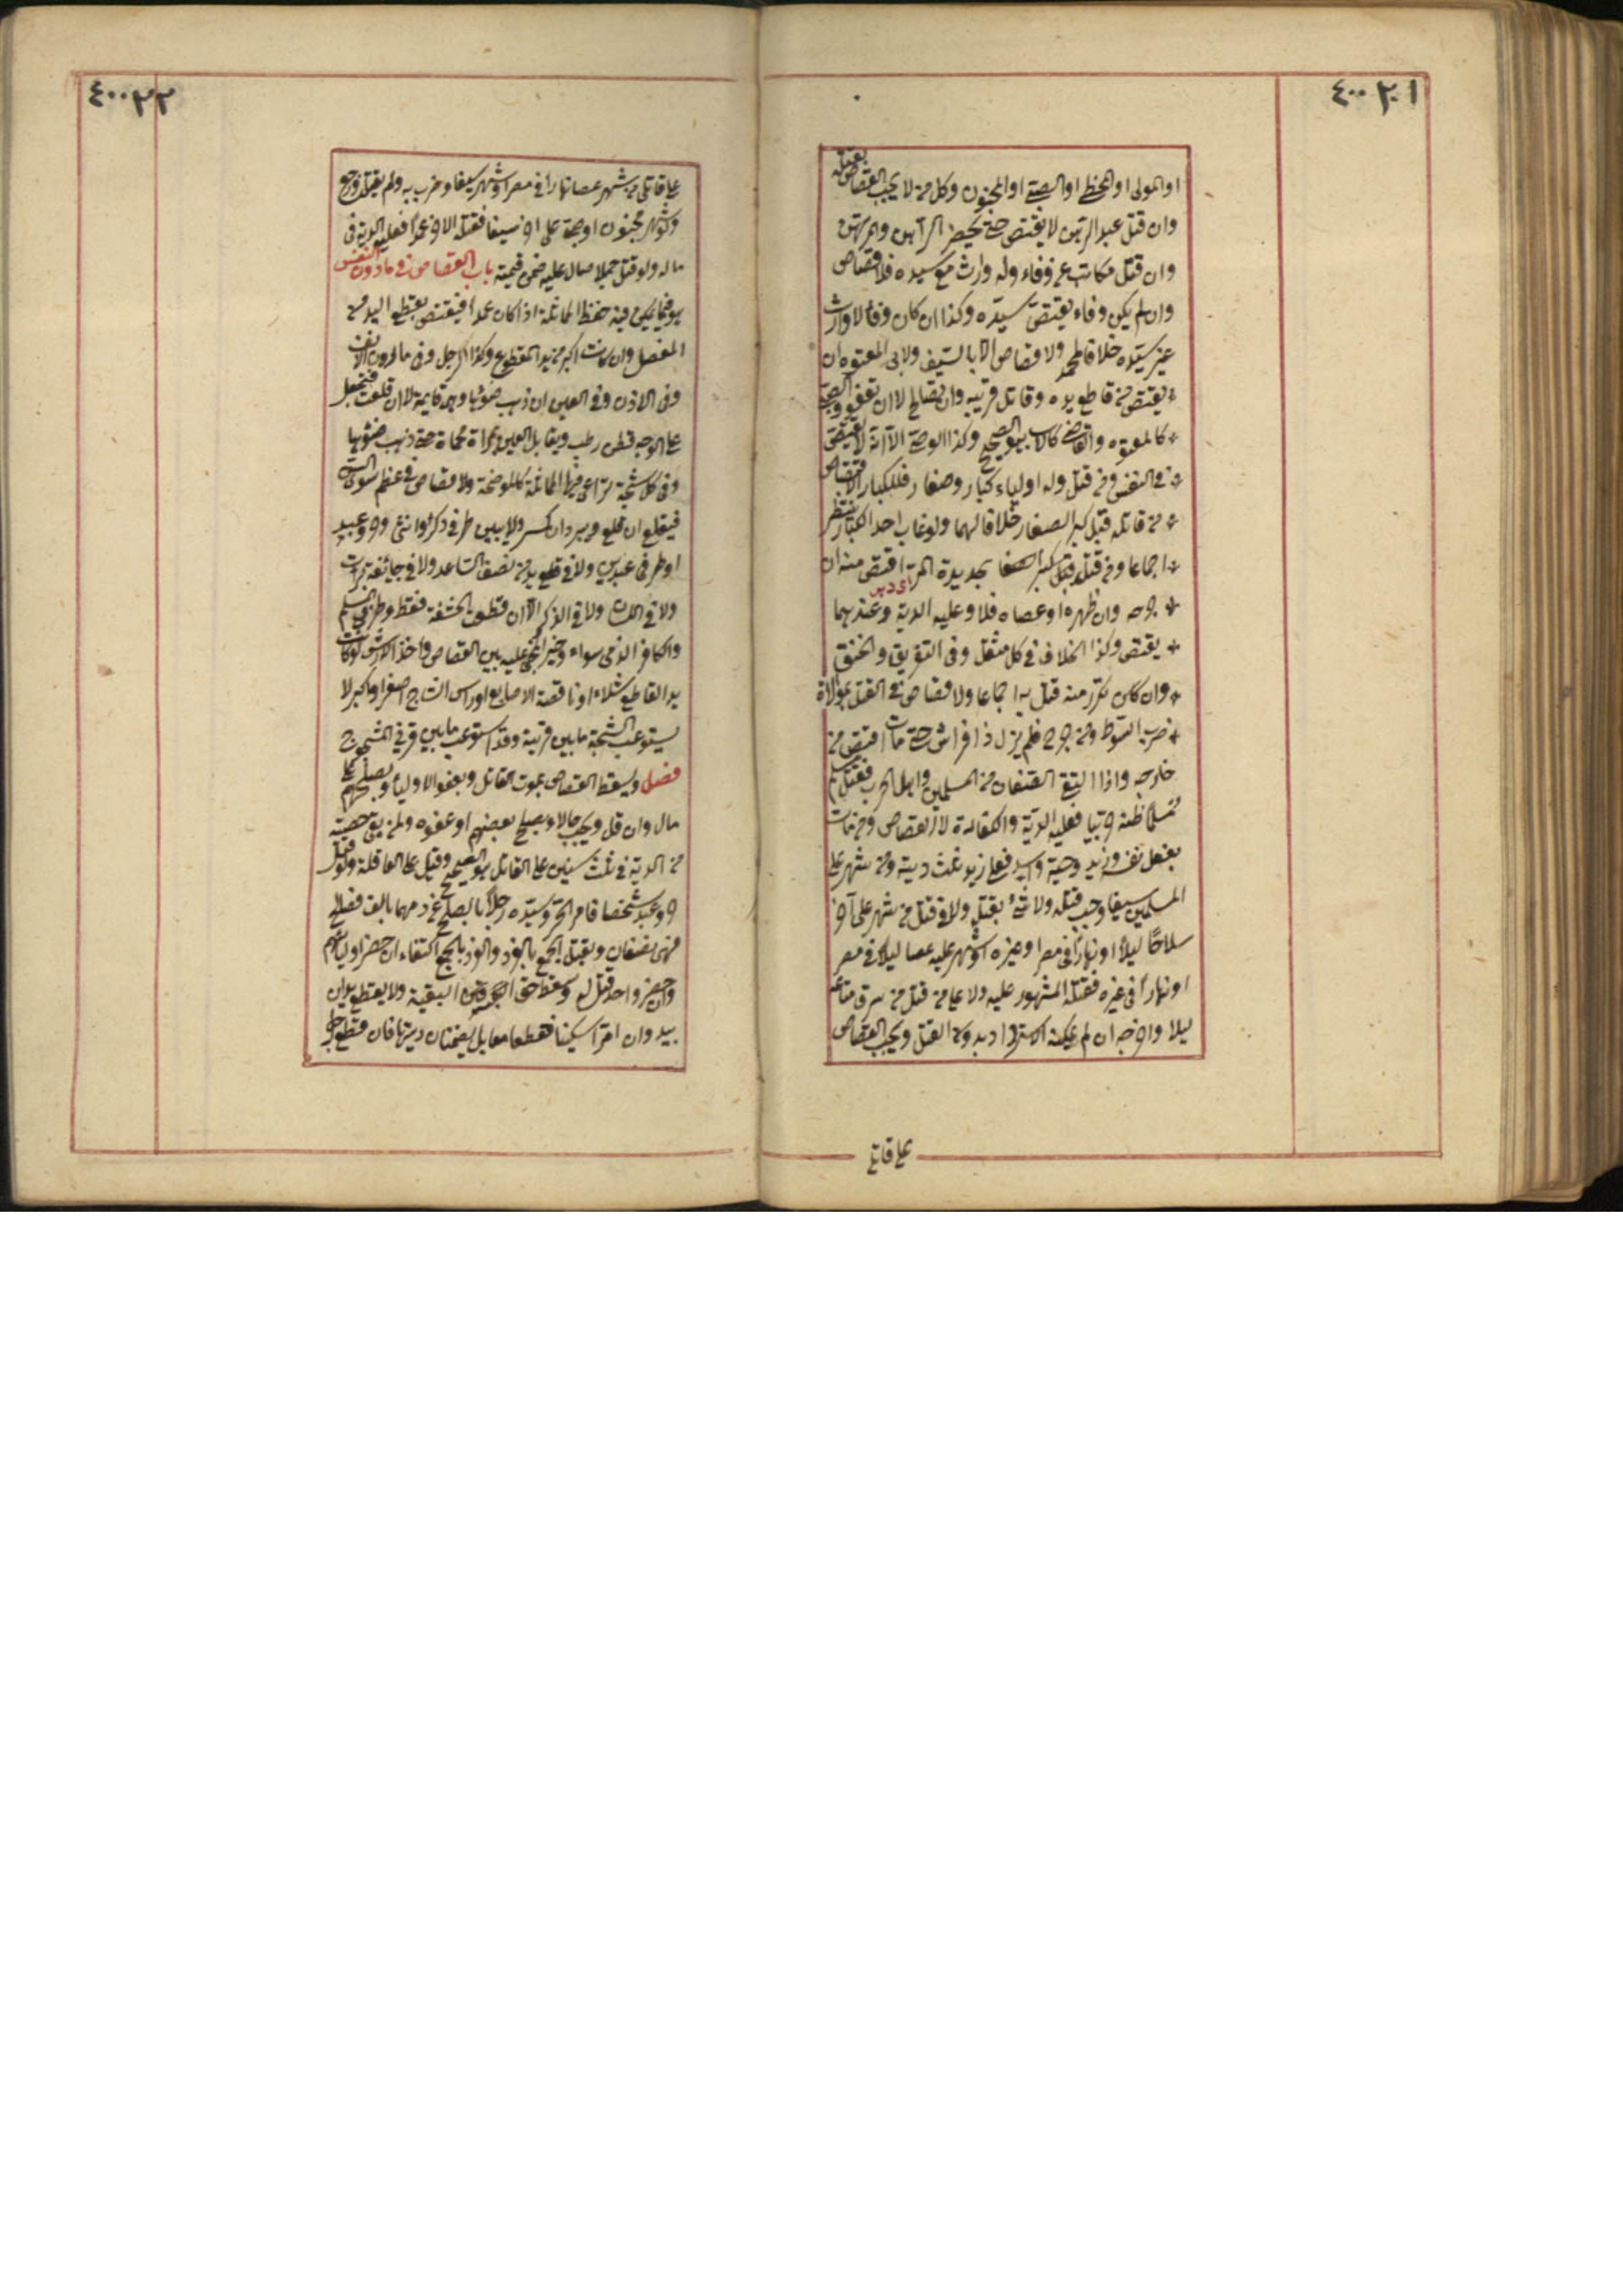 ٤٠٠٢٠١
او المولى او المخطئ او الصبي او المجنون وكل من لا يجب القصاص بقتله
وان قتل عبد الرهن لا يقتص حتى يحضر الراهن والمرتهن
وان قتل مكاتب عن وفاء وله وارث مع سيده فلا قصاص
وان لم يكن وفاء يقتص سيده وكذا ان كان وفاء لا وارث
غير سيده خلافا لمحمد ولا قصاص الا بالسيف ولابي المعتوه ان
يقتص من قاطع يده وقاتل قريبه وان يصالح لا ان يعفو والصبي
كالمعتوه والقاضي كالاب هو الصحيح وكذا الوصي الا انه لا يقتص
في النفس ومن قتل وله اولياء كبار وصغار فللكبار الاقتصاص
من قاتله قبل كبر الصغار خلافا لهما ولو غاب احد الكبار ينتظر
اجماعا ومن قتل بحديدة المر اقتص منه ان
جرحه وان ظهره او عصاه فلا وعليه الدية وعندهما
يقتص وكذا الخلاف في كل مثقل وفي التغريق والخنق
وان كان تكرر منه قتل به اجماعا ولا قصاص في القتل بموالاة
ضرب السوط ومن جرح فلم يزل ذا فراش حتى مات اقتص من
جارحه واذا التقى الصفان من المسلمين واهل الحرب فقتل مسلم
مسلما ظنه حربيا فعليه الدية والكفارة لا القصاص ومن مات
بفعل نفسه وزيد وحية واسد فعلى زيد ثلث دية ومن شهر على
المسلمين سيفا وجب قتله ولا شئ بقتله ولا في قتل من شهر على آخر
سلاحا ليلا او نهارا في مصر او غيره او شهر عليه عصا ليلا في مصر
او نهارا في غيره فقتله المشهور عليه ولا على من قتل من سرق متاعه
ليلا واخرجه ان لم يمكنه الاسترداد بدون القتل ويجب القصاص
على قاتل
٤٠٠٢٢
على قاتل من شهر عصا نهارا في مصر او شهر سيفا وضرب به ولم يقتل ورجع
ولو شهر مجنون او صبي على آخر سيفا فقتله الآخر عمدا فعليه الدية في
ماله ولو قتل جملا صال عليه ضمن قيمته باب القصاص في ما دون النفس
هو فيما يمكن فيه حفظ المماثلة اذا كان عمدا فيقتص بقطع اليد من
المفصل وان كانت اكبر من يد المقطوع وكذا الرجل وفي مارن الانف
وفي الاذن وفي العين ان ذهب ضوئها وهي قايمة لا ان قلعت فيجعل
على الوجه قطن رطب ويقابل العين بمرآة محماة حتى ذهب ضوئها
وفي كل شجة تراعى فيها المماثلة كالموضحة ولا قصاص في عظم سوى السن
فيقلع ان قلع ويبرد ان كسر ولا بين طرفي ذكر وانثى وحر وعبد
او طرفي عبدين ولا في قطع يد من نصف الساعد ولا في جائفة برئت
ولا في اللسان ولا في الذكر الا ان قطعت الحشفة فقط وطرف المسلم
والكافر الذمي سواء وخير المجني عليه بين القصاص واخذ الارش لو كانت
يد القاطع شلاء او ناقصة الاصابع او رأس الشاج اصغر او اكبر لا
يستوعب الشجة ما بين قرنيه وقد استوعب ما بين قرني المشجوج
فصل ويسقط القصاص بموت القاتل وبعفو الاولياء وبصلحهم على
مال وان قل ويجب حالا وبصلح بعضهم او عفوه ولمن بقي حصته
من الدية في ثلث سنين على القاتل هو الصحيح وقيل على العاقلة ولو قتل
حر وعبد شخصا فامر الحر وسيده رجلا بالصلح عن دمهما بالف فصالح
فهي نصفان ويقتل الجمع بالفرد والفرد بالجمع اكتفاء ان حضر اولياؤهم
وان حضر واحد قتل له وسقط حق البقية ولا يقطع يدان
بيد وان امرا سكينا فقطعا معا بل يضمنان ديتها فان قطع رجل